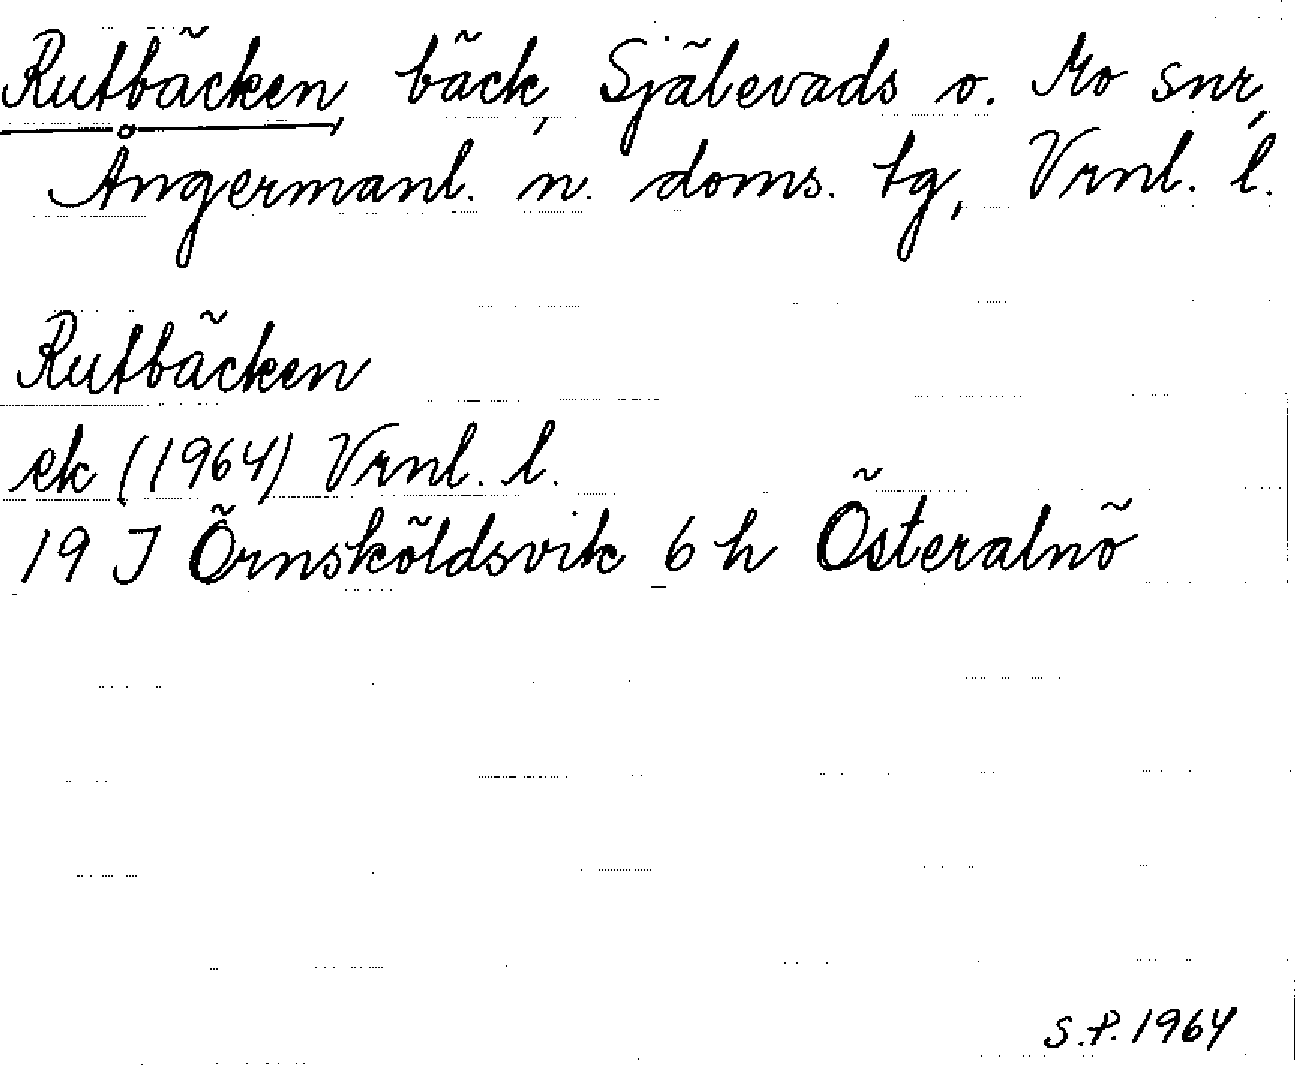 Rutbäcken, bäck, Själevads o. Mo snr,
Ångermanl. n. doms. tg, Vrnl. l.
Rutbäcken
ek (1964) Vrnl. l.
19 J Örnsköldsvik 6 h Österalnö
S.P. 1964